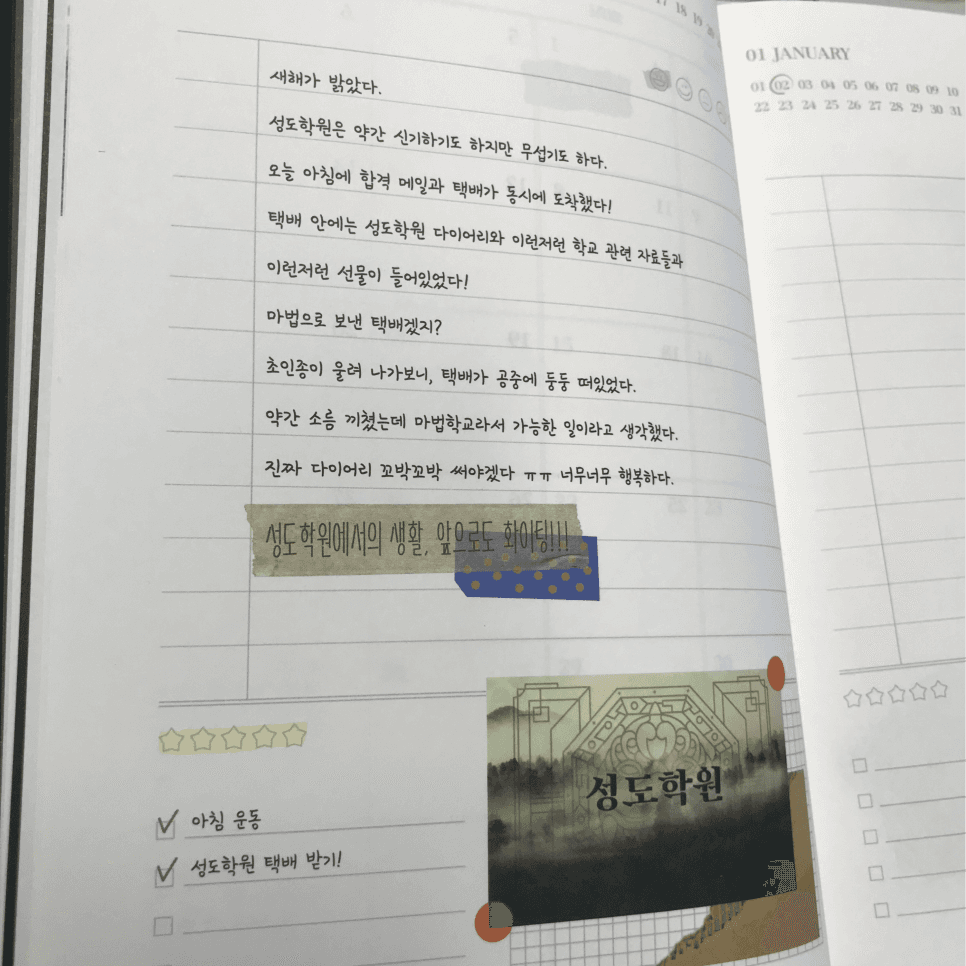 새해가 밝았다.
성도학원은 약간 신기하기도 하지만 무섭기도 하다.
오늘 아침에 합격 메일과 택배가 동시에 도착했다!
택배 안에는 성도학원 다이어리와 이런저런 학교 관련 자료들과
이런저런 선물이 들어있었다!
마법으로 보낸 택배겠지?
초인종이 울려 나가보니, 택배가 공중에 둥둥 떠있었다.
약간 소름 끼쳤는데 마법학교라서 가능한 일이라고 생각했다.
진짜 다이어리 꼬박꼬박 써야겠다 ㅠㅠ 너무너무 행복하다.
성도학원에서의 생활, 앞으로도 화이팅!!!
아침 운동
성도학원 택배 받기!
성도학원
17 18 19
01 JANUARY
01 02 03 04 05 06 07 08 09 10
22 23 24 25 26 27 28 29 30 31